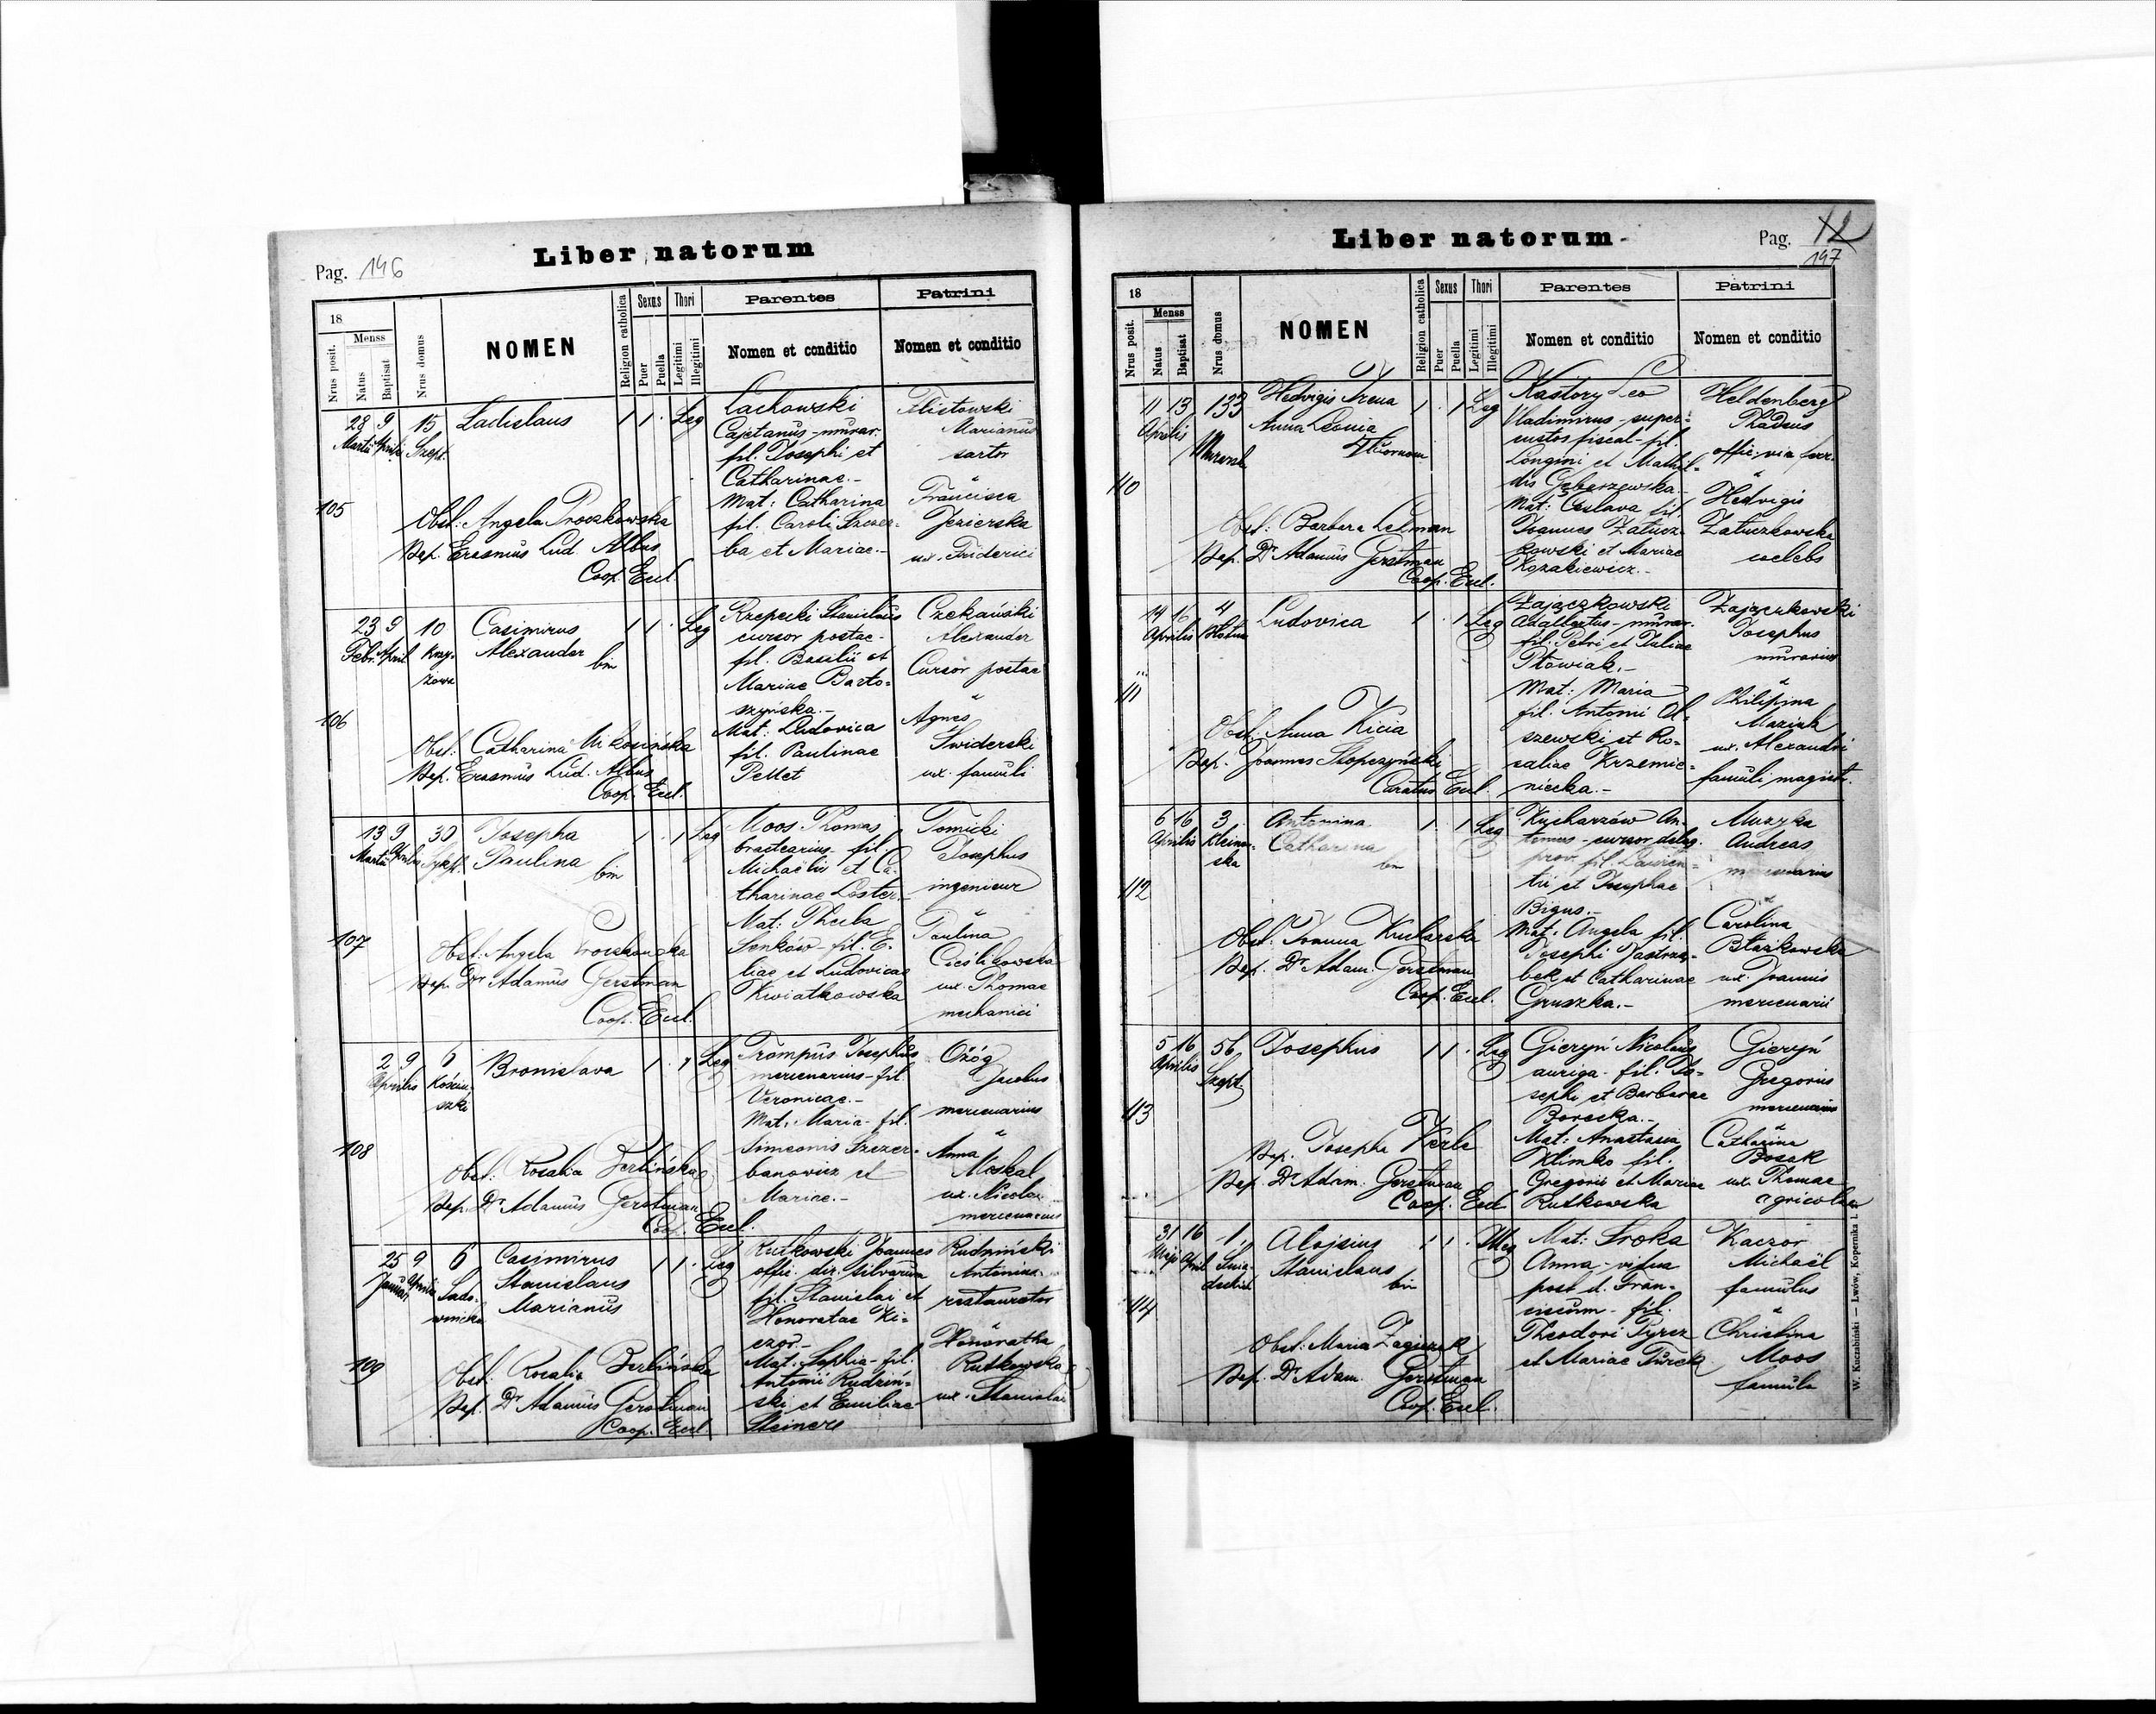 Pag. 146
Liber natorum
18
Nrus posit.
Menss
Natus
Baptisat
Nrus domus
NOMEN
Religion catholica
Sexus
Puer
Puella
Thori
Legitimi
Illegitimi
Parentes
Nomen et conditio
Patrini
Nomen et conditio
105
28 9 15 Ladislaus 1 1 Leg
Martii Aprilis Szept.
Obst: Angela Proczkowska
Bap. Erasmus Lud. Albus
Coop. Eccl.
Lachowski
Cajetanus - murar.
fil. Josephi et
Catharinae.-
Mat: Catharina
fil. Caroli
ba et Mariae.-
Marianus
sartor
Francisca
Jezierska
ux. Friderici
106
23 9 10 Casimirus 1 1 Leg
Febr. April Alexander
bin
Obst: Catharina Mikosińska
Bap. Erasmus Lud. Albus
Coop. Eccl.
Rzepecki Stanislaus
cursor postae-
fil. Basilii et
Mariae Barto-
szyńska.-
Mat: Ludovica
fil. Paulinae
Pellet
Czekański
Alexander
Cursor postae
Agnes
Świderski
ux. famuli
107
13 9 30 Josepha 1 1 Leg
Martii Aprilis Paulina
bin
Obst: Angela
Bap. Dr Adamus Gerstman
Coop. Eccl.
Moos Thomas
fil.
Michaëlis et Ca-
tharinae Lester.-
Mat: Thecla
Senków - fil. E-
liae et Ludovicae
Kwiatkowska
Tomicki
Josephus
ingenieur
Paulina
Cieślikowska
ux. Thomae
mechanici
108
2 9 6 Bronislava 1 1 Leg
Aprilis Kościu-
szki
Obst: Rosalia Berlińska
Bap. Dr Adamus Gerstman
Coop. Eccl.
Trompus Josephus
mercenarius - fil.
Veronicae.-
Mat: Maria - fil.
Simeonis Szczer-
banowicz et
Mariae.-
Ożóg
Jacobus
mercenarius
Anna
Moskal
ux. Nicolai
109
25 9 6 Casimirus 1 1 Leg
Januar Aprilis Stanislaus
Marianus
Obst: Rosalia Berlińska
Bap. Dr Adamus Gerstman
Coop. Eccl.
Rutkowski Joannes
offic. dir. silvarum
fil. Stanislai et
Honoratae Ki-
czor.-
Mat. Sophia - fil.
Antonii Rudziń-
ski et Emiliae
Steinere
Rudziński
Antonius
restaurator
Honoratha
Rutkowska
ux. Stanislai
Liber natorum
Pag. 12
197
18
Nrus posit.
Menss
Natus
Baptisat
Nrus domus
NOMEN
Religion catholica
Sexus
Puer
Puella
Thori
Legitimi
Illegitimi
Parentes
Nomen et conditio
Patrini
Nomen et conditio
110
11 13 133 Hedvigis Irena 1 1 Leg
Aprilis Anna Leonia
Obst: Barbara Lelman
Bap. Dr Adamus Gerstman
Coop. Eccl.
Kastory Leo
Vladimirus - super-
custos fiscal - fil.
Longini et Mathil-
dis
Mat: Ceslava fil.
Joannes Zatucz-
kowski et Mariae
Kozakiewicz.-
Heldenberg
Thadeus
offic. via ferr.
Hedvigis
Zatuczkowska
coelebs
111
14 16 4 Ludovica 1 1 Leg
Aprilis
Obst: Anna Kicia
Bap. Joannes Słopczyński
Curatus Eccl.
Zajączkowski
Adalbertus - murar.
fil. Petri et Juliae
Ptowiak.-
Mat: Maria
fil. Antonii Ol-
szewski et Ro-
saliae Krzemie-
niecka.-
Zajączkowski
Josephus
murarius
Philipina
Maziak
ux. Alexandri
famuli magistr.
112
6 16 3 Antonina 1 1 Leg
Aprilis Kleinow-
ska Catharina
bin
Obst: Joanna Kucharska
Bap. Dr Adam. Gerstman
Coop. Eccl.
Kucharzów An-
tonius - cursor
prov. fil. Lauren-
tii et Josephae
Bigus.-
Mat: Angela fil.
Josephi Jastrzę-
bek et Catharinae
Gruszka.-
Muzyka
Andreas
mercenarius
Carolina
Błazkowska
ux. Joannis
mercenarii
113
5 16 56 Josephus 1 1 Leg
Aprilis Szept
Bap. Josepha Verle
Bap. Dr Adam. Gerstman
Coop. Eccl
Gieryń Nicolaus
auriga - fil. Jo-
sephi et Barbarae
Borecka.-
Mat: Anastasia
Klimko fil.
Gregorii et Mariae
Rutkowska
Gieryń
Gregorius
mercenarius
Catharina
Bosak
ux. Thomae
agricolae
114
31 16 1 Alojsius 1 1 Illeg
April Stanislaus
bin
Obst: Maria
Bap. Dr Adam. Gerstman
Coop. Eccl.
Mat: Sroka
Anna - vidua
post d. Fran-
ciscum - fil.
Theodori Pyrcz
et Mariae Turek
Kaczor
Michaël
famulus
Christina
Moos
famula
W. Kuczabiński — Lwów, Kopernika 1.